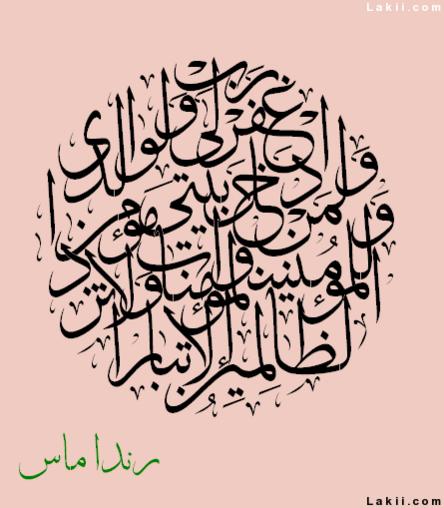 Lakii.com
رب
اغفر لي ولوالدي
ولمن دخل بيتي مؤمنا
وللمؤمنين والمؤمنات ولا تزد
الظالمين إلا تبارا
رندا ماس
Lakii.com